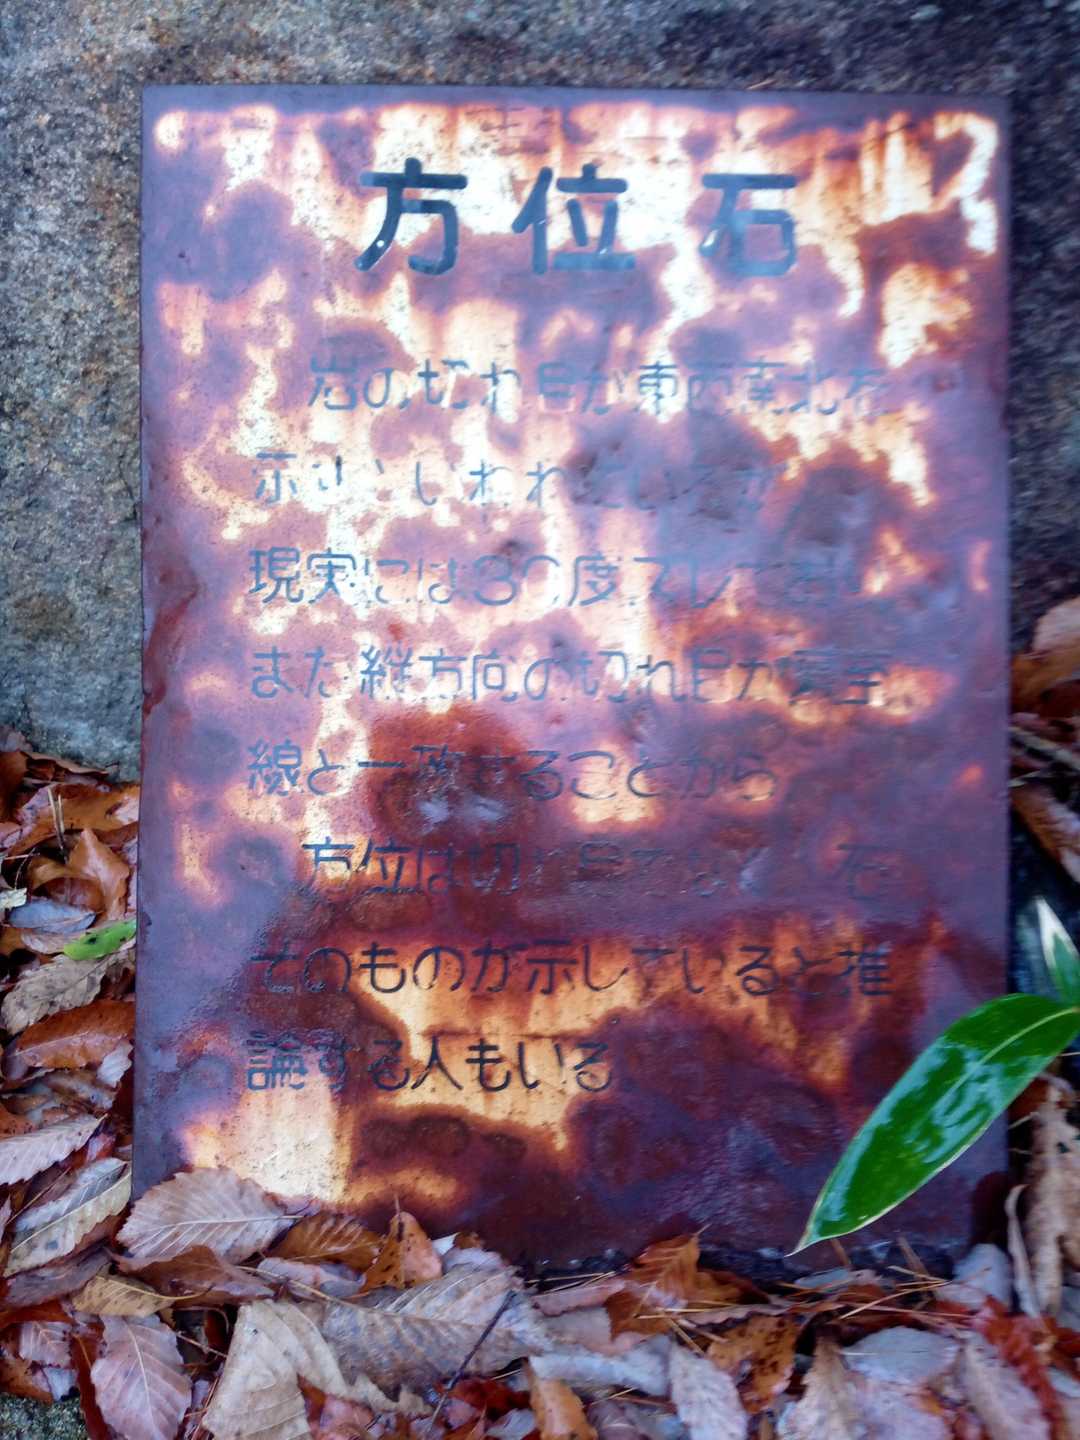 方位石
岩の切れ目が東西南北を
示すといわれているが
現実には30度ズレており
また縦方向の切れ目が
線と一致することから
方位は切れ目でなく 石
そのものが示していると推
論する人もいる